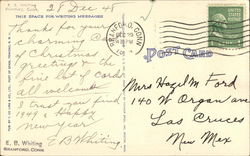 28 Dec '48
THIS SPACE FOR WRITING MESSAGES
Thanks for your
charming
Christmas
greetings & the
price list of cards
all welcome
I trust you find
1949 a Happy
New year.
E B Whiting
E. B. Whiting
BRANFORD, CONN.
BRANFORD, CONN
DEC 29
POST CARD
Mrs Hazel M Ford
140 W Organ ave
Las Cruces
New Mex